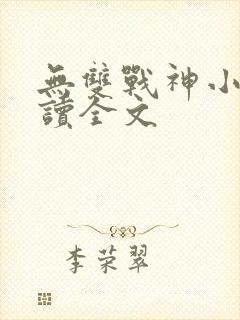 無雙戰神小
讀全文
李荣翠